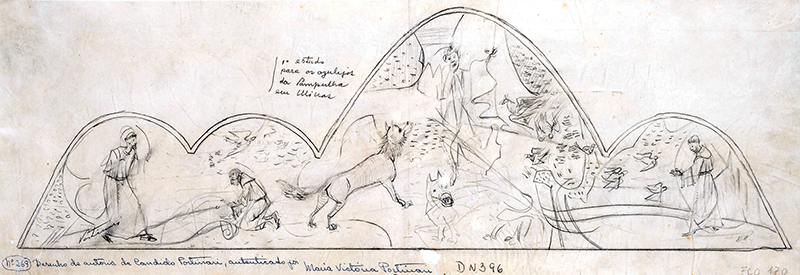 1º estudo
para os azulejos
da Pampulha
em Minas
Nº 269 Desenho de autoria de Candido Portinari, autenticado por Maria Victoria Portinari. DN396
FCO 170